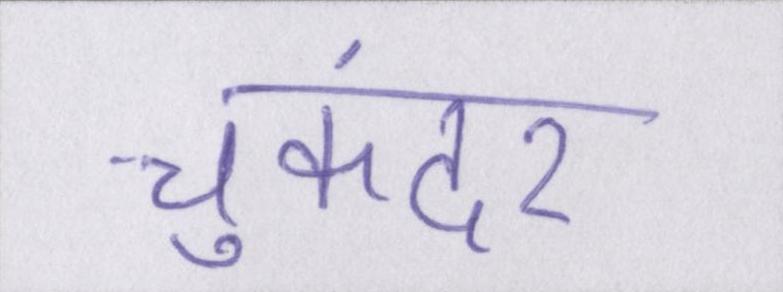 चुकंदर